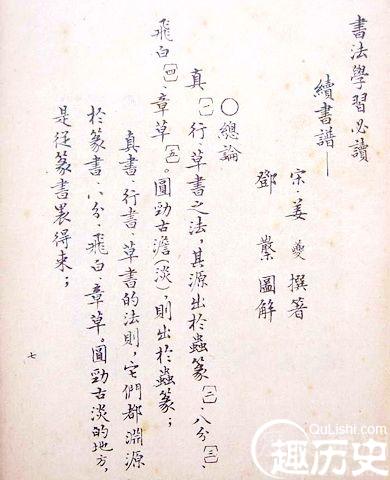 書法學習必讀
續書譜——
宋·姜夔撰著
鄧散圖解
○總論
真〔一〕、行、草書之法，其源出於蟲篆〔二〕、八分〔三〕、
飛白〔四〕、章草〔五〕。圓勁古澹(淡)，則出於蟲篆；
真書、行書、草書的法則，它們都淵源
於篆書、八分、飛白、章草。圓勁古淡的地方，
是從篆書裏得來；
七
QuLishi.com
趣历史